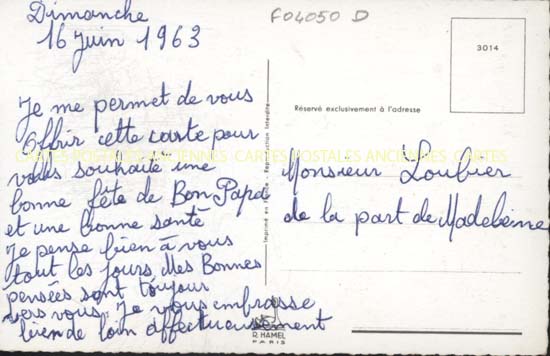 Dimanche
16 Juin 1963
F04050 D
3014
Réservé exclusivement à l'adresse
Je me permet de vous
offrir cette carte pour
vous souhaité une
bonne fête de Bon Papa
et une bonne santé
Je pense bien à vous
tout les jours Mes Bonnes
pensées sont toujour
vers vous. Je vous embrasse
bien de loin affectueusement
CARTES POSTALES ANCIENNES CARTES POSTALES ANCIENNES CARTES
Imprimé en France - Reproduction Interdite
Monsieur Loubier
de la part de Madeleine
R. HAMEL
PARIS